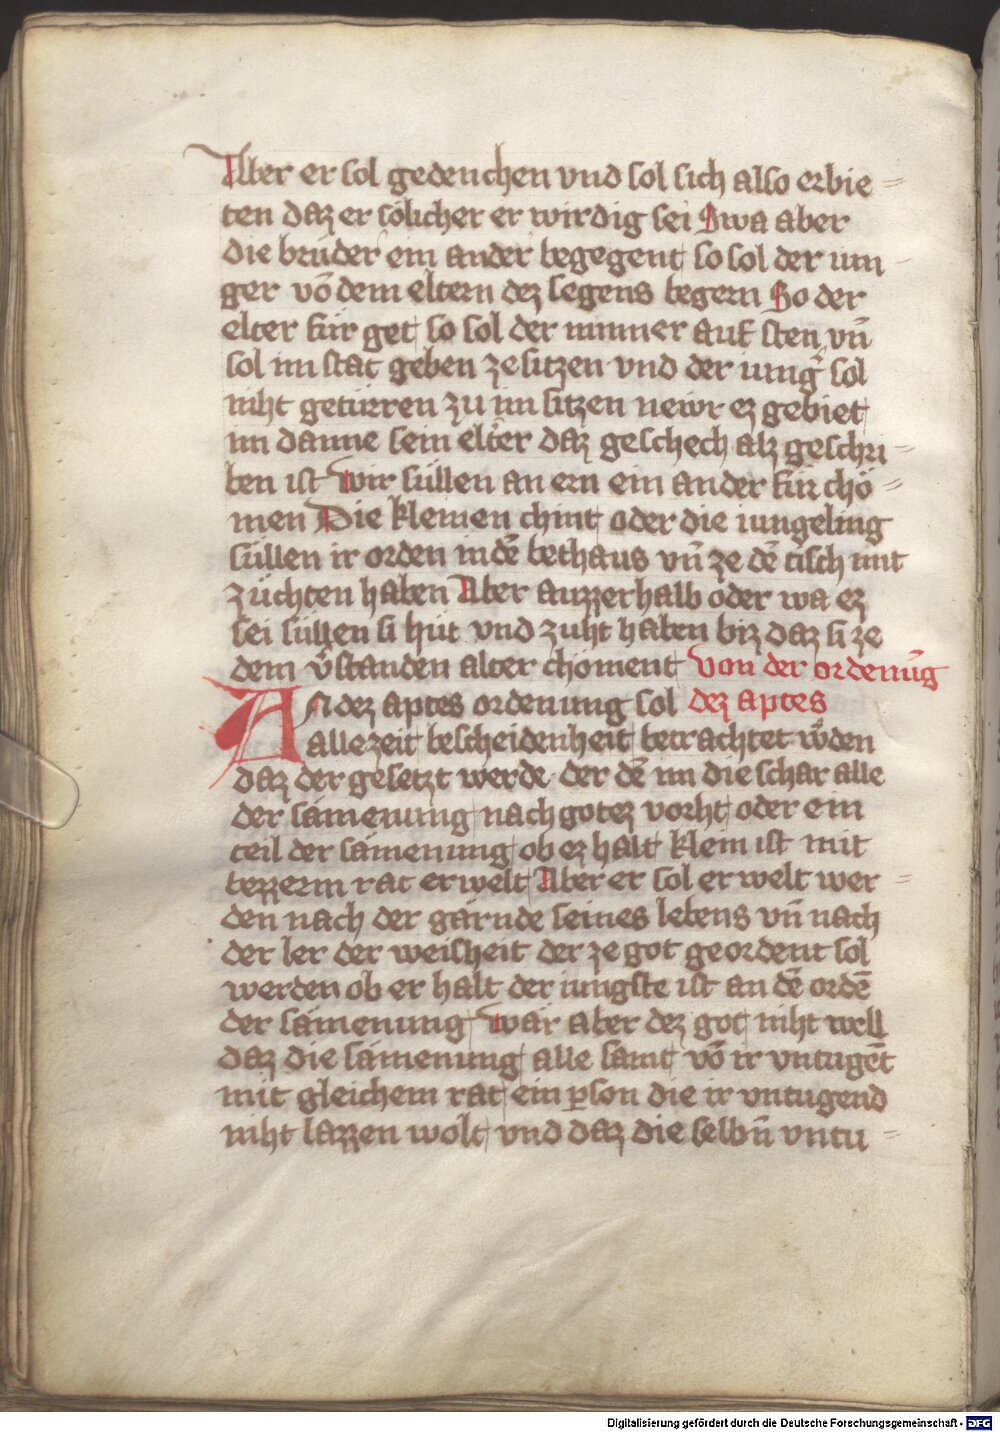 Aber er sol gedenchen vnd sol sich also erbie=
ten daz er sölicher er wirdig sei Swa aber
die brüder ein ander begegent so sol der iun-
ger võ dem eltern dez segens begern So der
elter für get so sol der minner auf sten vñ
sol im stat geben ze sitzen vnd der iung͛ sol
niht getürren zu im sitzen newr ez gebiet
im danne sein elter daz geschech alz geschri=
ben ist wir süllen an ern ein ander für chö=
men Die kleinen chint oder die iungeling
süllen ir orden in dē bethaus vñ ze dē tisch mit
züchten haben Aber auzzerhalb oder wa ez
sei süllen si hüt vnd zuht haben biz daz si ze
dem v͛standen alter choment von der ordenūg
An dez aptes ordenung sol dez aptes
allezeit bescheidenheit betrachtet w͛den
daz der gesetzt werde der dē im die schar alle
der sämenung nach gotez vorht oder ein
teil der sämenung ob ez halt klein ist mit
bezzerm rat erwelt Aber er sol erwelt wer=
den nach der garnde seines lebens vñ nach
der ler der weisheit der ze got geordent sol
werden ob er halt der iungste ist an dē ordē
der sämenung wär aber dez got niht well
daz die sämenung alle samt võ ir vntugēt
mit gleichem rat ein ꝑson die ir vntugend
niht lazzen wölt vnd daz die selbñ vntu=
Digitalisierung gefördert durch die Deutsche Forschungsgemeinschaft - DFG